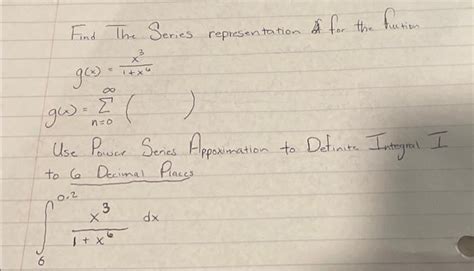 Find The Series representation of for the fuction
g(x) = x³ / 1 + x⁶
g(x) = ∞ Σ n=0 ( )
Use Power Series Appoximation to Definite Integral I
to 6 Decimal Places
∫ 0.2 6 x³ / 1 + x⁶ dx